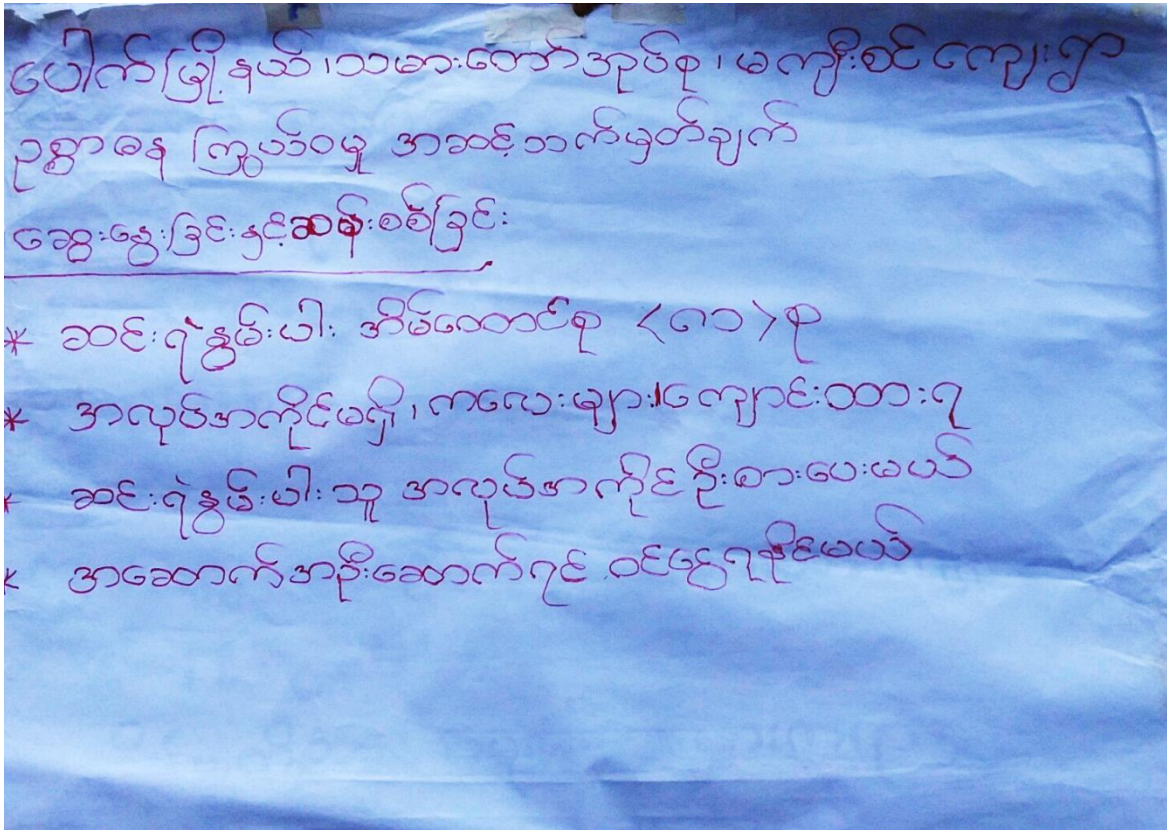 ပေါက်မြို့နယ်၊သမားတော်အုပ်စု၊မကျီးစင်ကျေးရွာ
ဥစ္စာဓန ကြွယ်ဝမှု အဆင့်ဘက်မှတ်ချက်
ဆွေးနွေးခြင်းနှင့်ဆန်းစစ်ခြင်း
* ဆင်းရဲနွမ်းပါး အိမ်ထောင်စု <၈၁> စု
* အလုပ်အကိုင်မရှိ၊ကလေးများကျောင်းထားရ
* ဆင်းရဲနွမ်းပါးသူ အလုပ်အကိုင်ဦးစားပေးမယ်
* အဆောက်အဦးဆောက်ရင် ဝင်ငွေရနိုင်မယ်